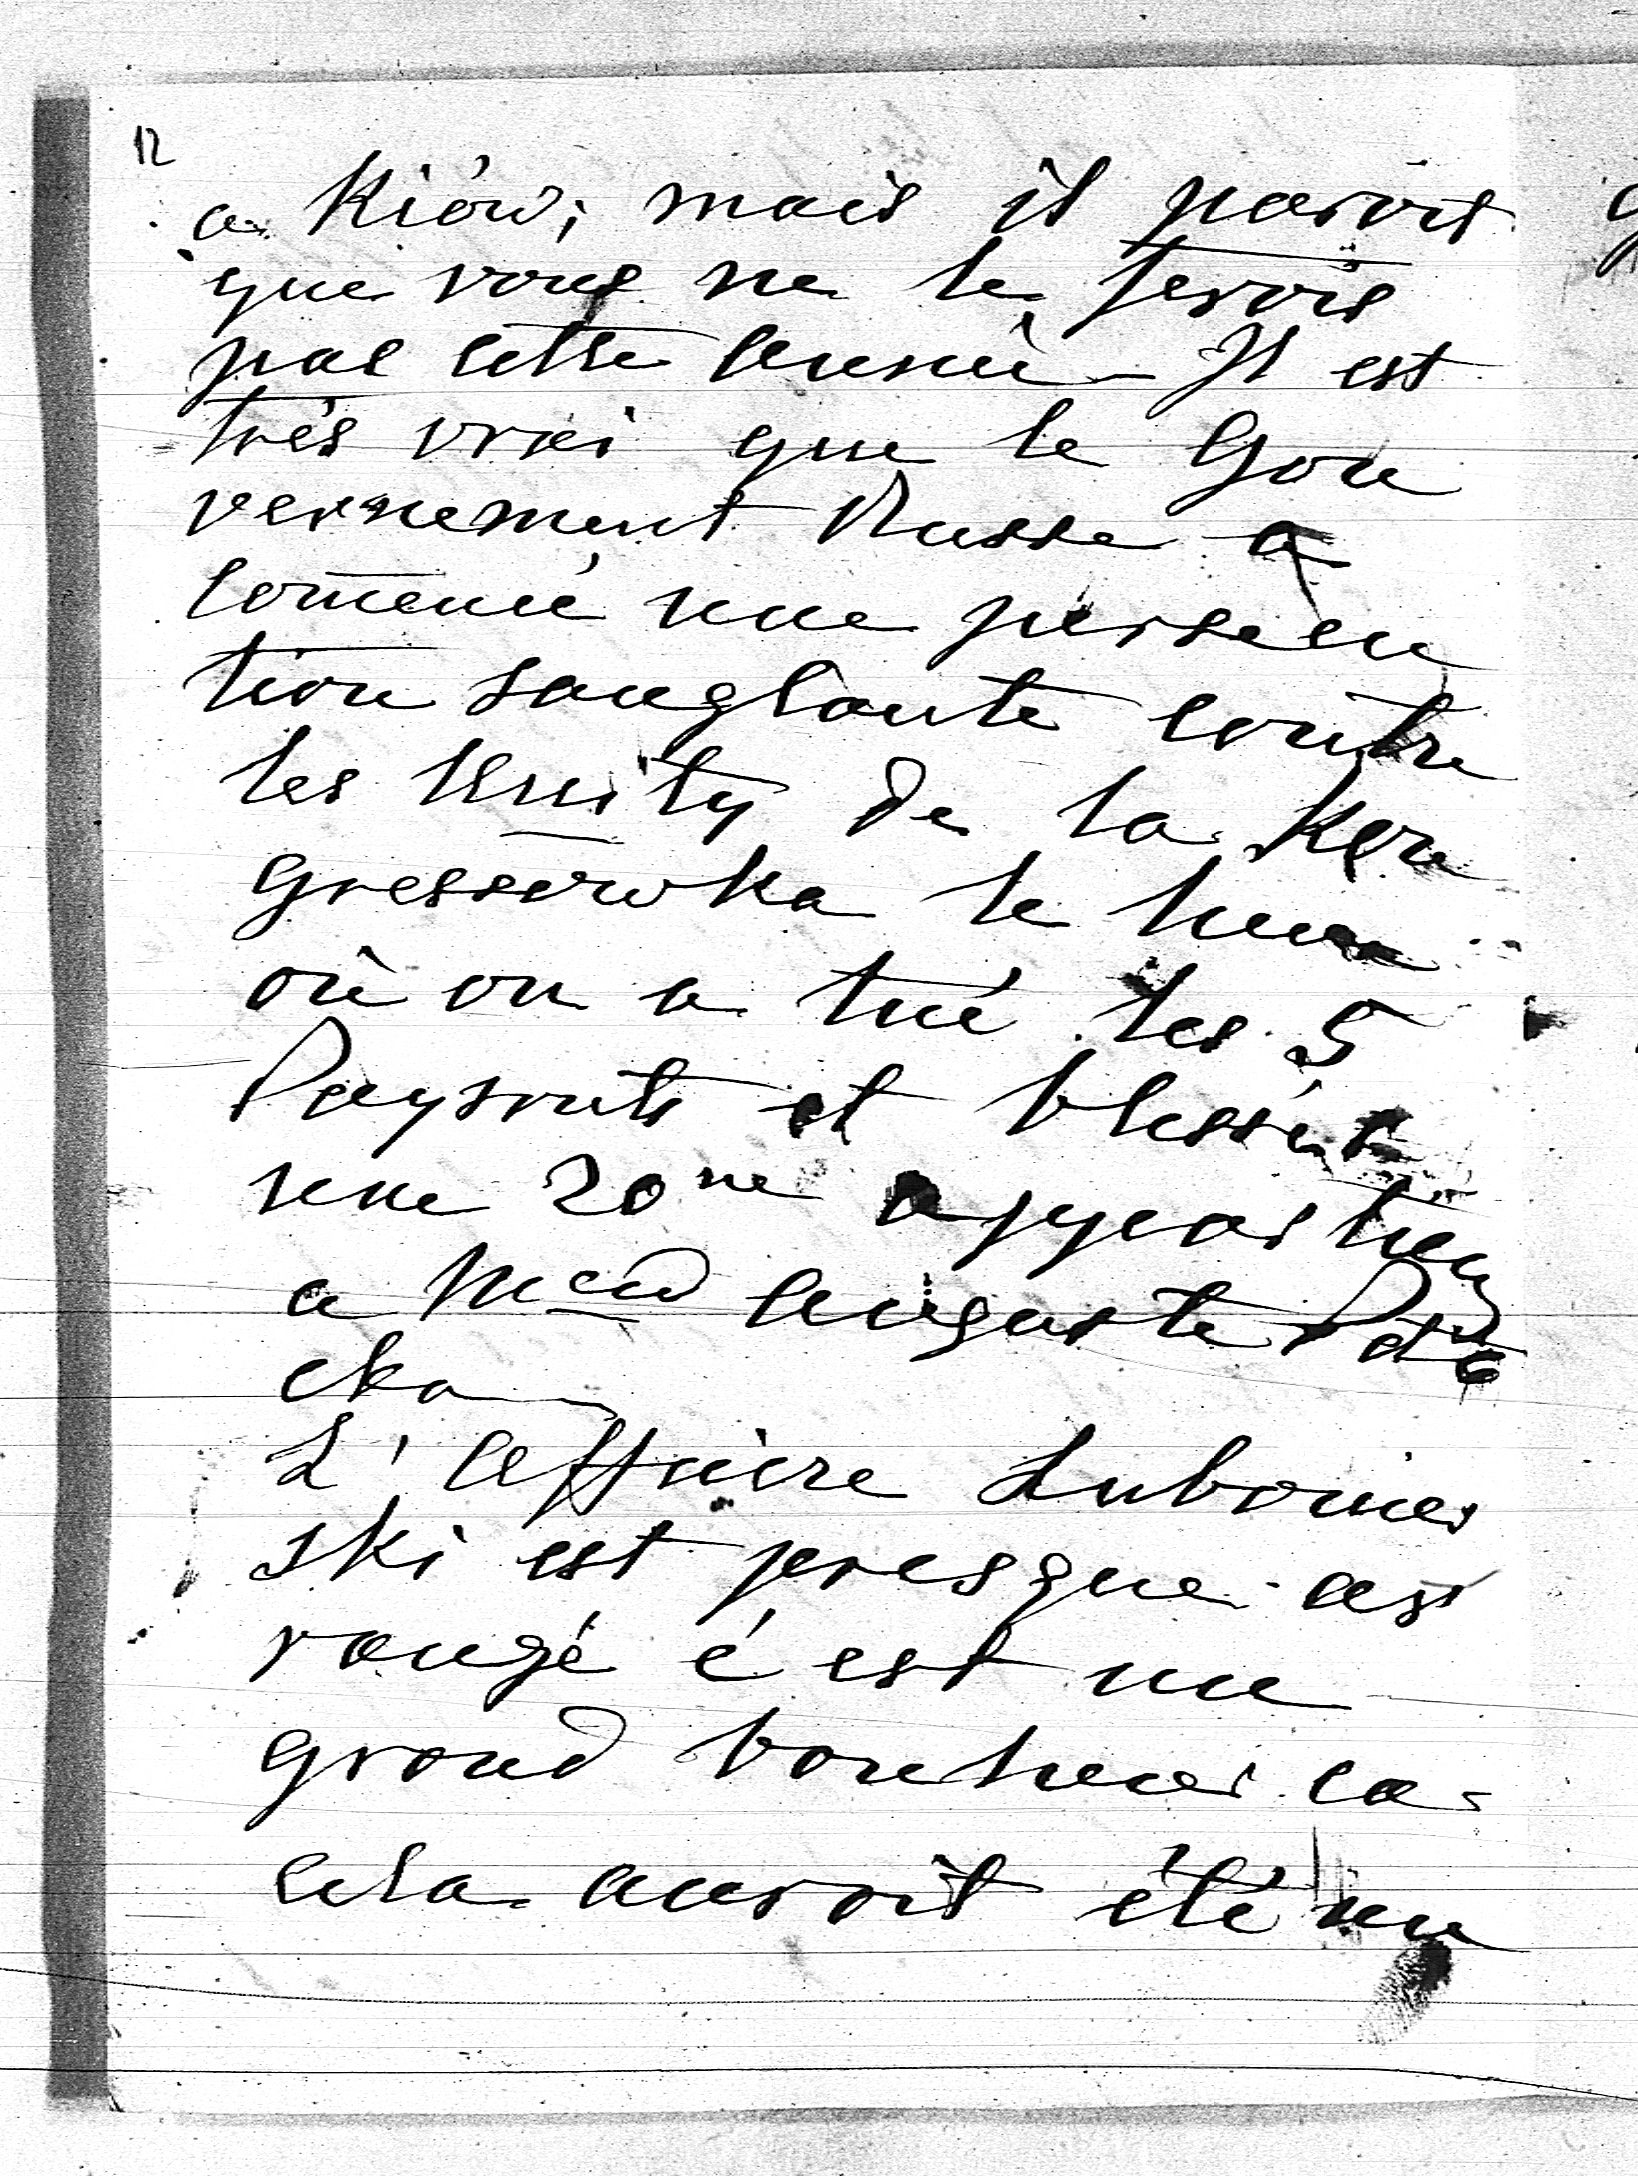 12
a Kiów; mais il parois
que vous ne le ferois
pas cette année – Il est
très vrai que le Gou
vernement Russe a
com̄encé une persécu
tion sanglante contre
les Unity de la Kon
gressowka le lieu
où on a tué les 5
Paysants et blessés
une 20ne appartien
a Mend Auguste Poto
cka
L'Affaire Lubomir
ski est presque ar
rangé c'est un
grand bonheur ca
cela auroit été un